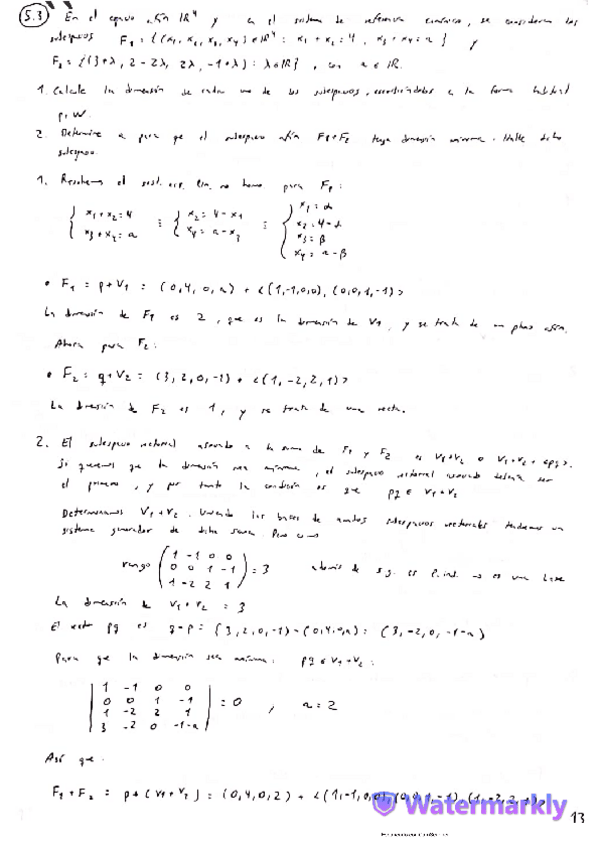 5.3) En el espacio afín ℝ⁴ y en el sistema de referencia canónico, se consideran los
subespacios F₁ = {(x₁, x₂, x₃, x₄) ∈ ℝ⁴ : x₁ + x₂ = 4, x₃ + x₄ = a} y
F₂ = {(3+λ, 2-2λ, 2λ, -1+λ) : λ∈ℝ}, con a ∈ ℝ.
1. Calcule la dimensión de cada uno de los subespacios, escribiéndolos a la forma habitual
p+W.
2. Determine a para que el subespacio afín F₁+F₂ tenga dimensión mínima. Halle dicho
subespacio.
1. Resolvemos el sist. ec. lin. no homo para F₁:
{ x₁+x₂=4 ; x₃+x₄=a ⋮ { x₂=4-x₁ ; x₄=a-x₃ ⋮ { x₁=α ; x₂=4-α ; x₃=β ; x₄=a-β
• F₁ = p+V₁ = (0,4,0,a) + <(1,-1,0,0), (0,0,1,-1)>
La dimensión de F₁ es 2, que es la dimensión de V₁, y se trata de un plano afín.
Ahora para F₂:
• F₂ = q+V₂ = (3,2,0,-1) + <(1,-2,2,1)>
La dimensión de F₂ es 1, y se trata de una recta.
2. El subespacio vectorial asociado a la suma de F₁ y F₂ es V₁+V₂ o V₁+V₂+<pq>.
Si queremos que la dimensión sea mínima, el subespacio vectorial asociado debería ser
el primero, y por tanto la condición es que pq ∈ V₁+V₂
Determinamos V₁+V₂. Uniendo las bases de ambos subespacios vectoriales tendremos un
sistema generador de dicha suma. Pero como
rango (1 -1 0 0 ; 0 0 1 -1 ; 1 -2 2 1) = 3 además de s.g. es l.ind. → es una base
La dimensión de V₁+V₂ = 3
El vect pq es q-p = (3,2,0,-1)-(0,4,0,a) = (3,-2,0,-1-a)
Para que la dimensión sea mínima: pq ∈ V₁+V₂:
| 1 -1 0 0 ; 0 0 1 -1 ; 1 -2 2 1 ; 3 -2 0 -1-a | = 0 , a = 2
Así que:
F₁+F₂ = p+(V₁+V₂) = (0,4,0,2) + <(1,-1,0,0), (0,0,1,-1), (1,-2,2,1)>
Watermarkly
13